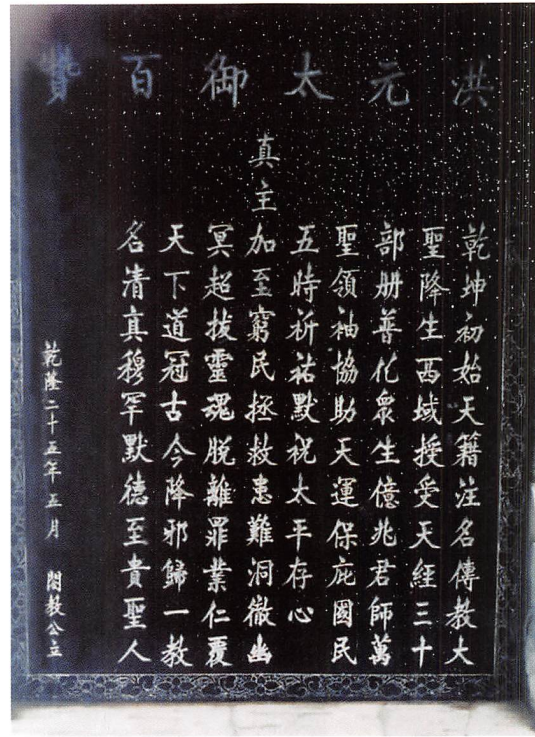 洪元太御百贊
乾坤初始天籍注名傳教大
聖降生西域授受天經三十
部册普化衆生億兆君師萬
聖領袖協助天運保庇國民
五時祈祐默祝太平存心
真主加至窮民拯救患難洞徹幽
冥超拔靈魂脱離罪業仁覆
天下道冠古今降邪歸一教
名清真穆罕默德至貴聖人
乾隆二十五年五月 閤教公立